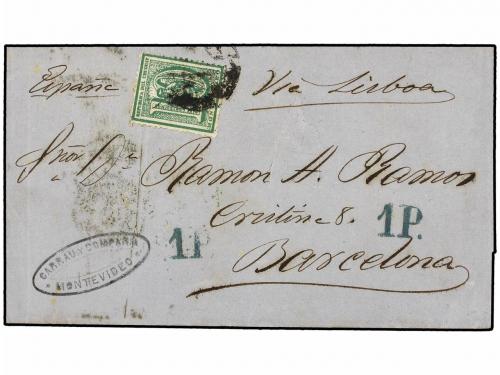 España
Via Lisboa
Señor Dn
Ramon A. Ramon
Cristina 8.
1P.
1P.
Barcelona
CARRAU Y COMPAÑIA
MONTEVIDEO